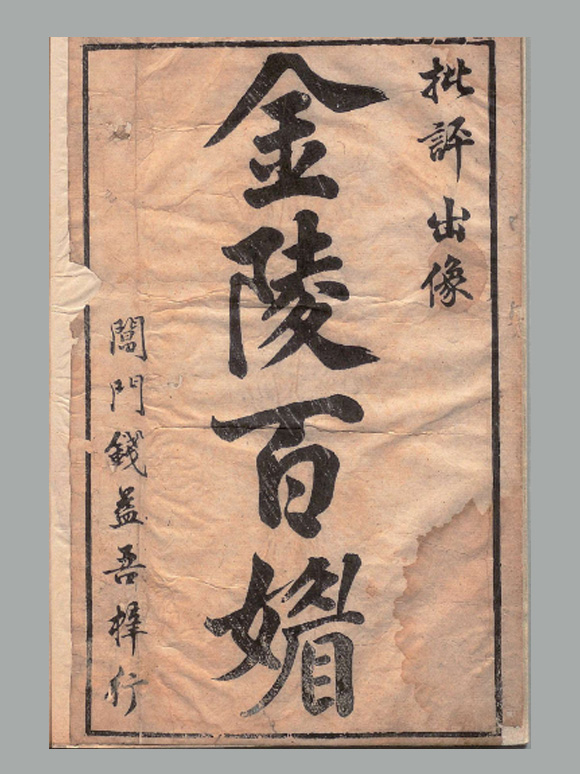 批評出像
金陵百媚
閶門錢益吾梓行